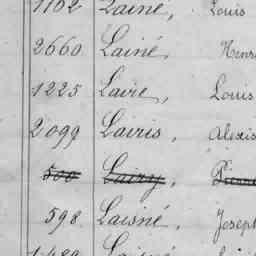 1162 Lainé, Louis
2660 Lainé, Henri
1225 Laire, Louis
2099 Lairis, Alexis
500 Lairy,
598 Laisné, Joseph